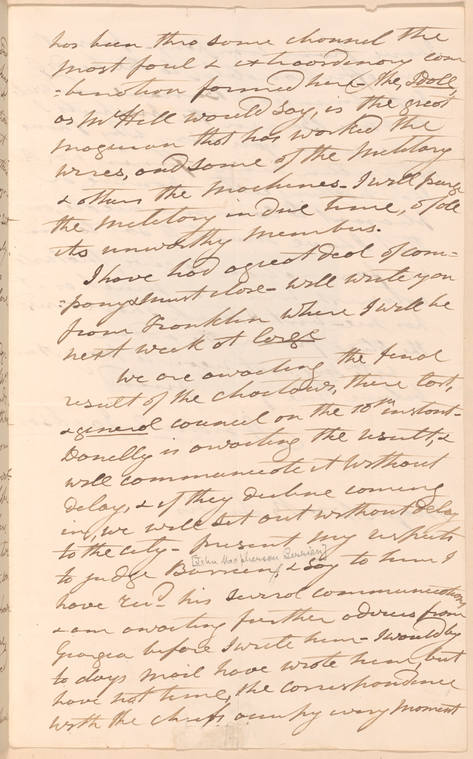 has been thro some channel the
most foul & extraordinary com
=bination formed here (the, Idoll,
as Mr Hill would say, is the great
magician that has worked the
wires, and some of the military
& others the machines - I will purge
the military in due time, of all
its unworthy members -
I have had a great deal of com=
=pany & must close - will write you
from Franklin where I will be
next week at large
We are awaiting the final
result of the choctaws, there last,
& general council on the 10th instant -
Donelly is awaiting the result, &
will communicate it without
delay, & if they decline coming
in, we will set out without delay
to the city - present my respects
[John Macpherson Berrien]
to judge Barrien, & say to him I
have recd. his several communications
& am awaiting further advices from
Georgia before I write him - I would by
to days mail have wrote him, but
have not time, the correspondence
with the chiefs occupy every moment